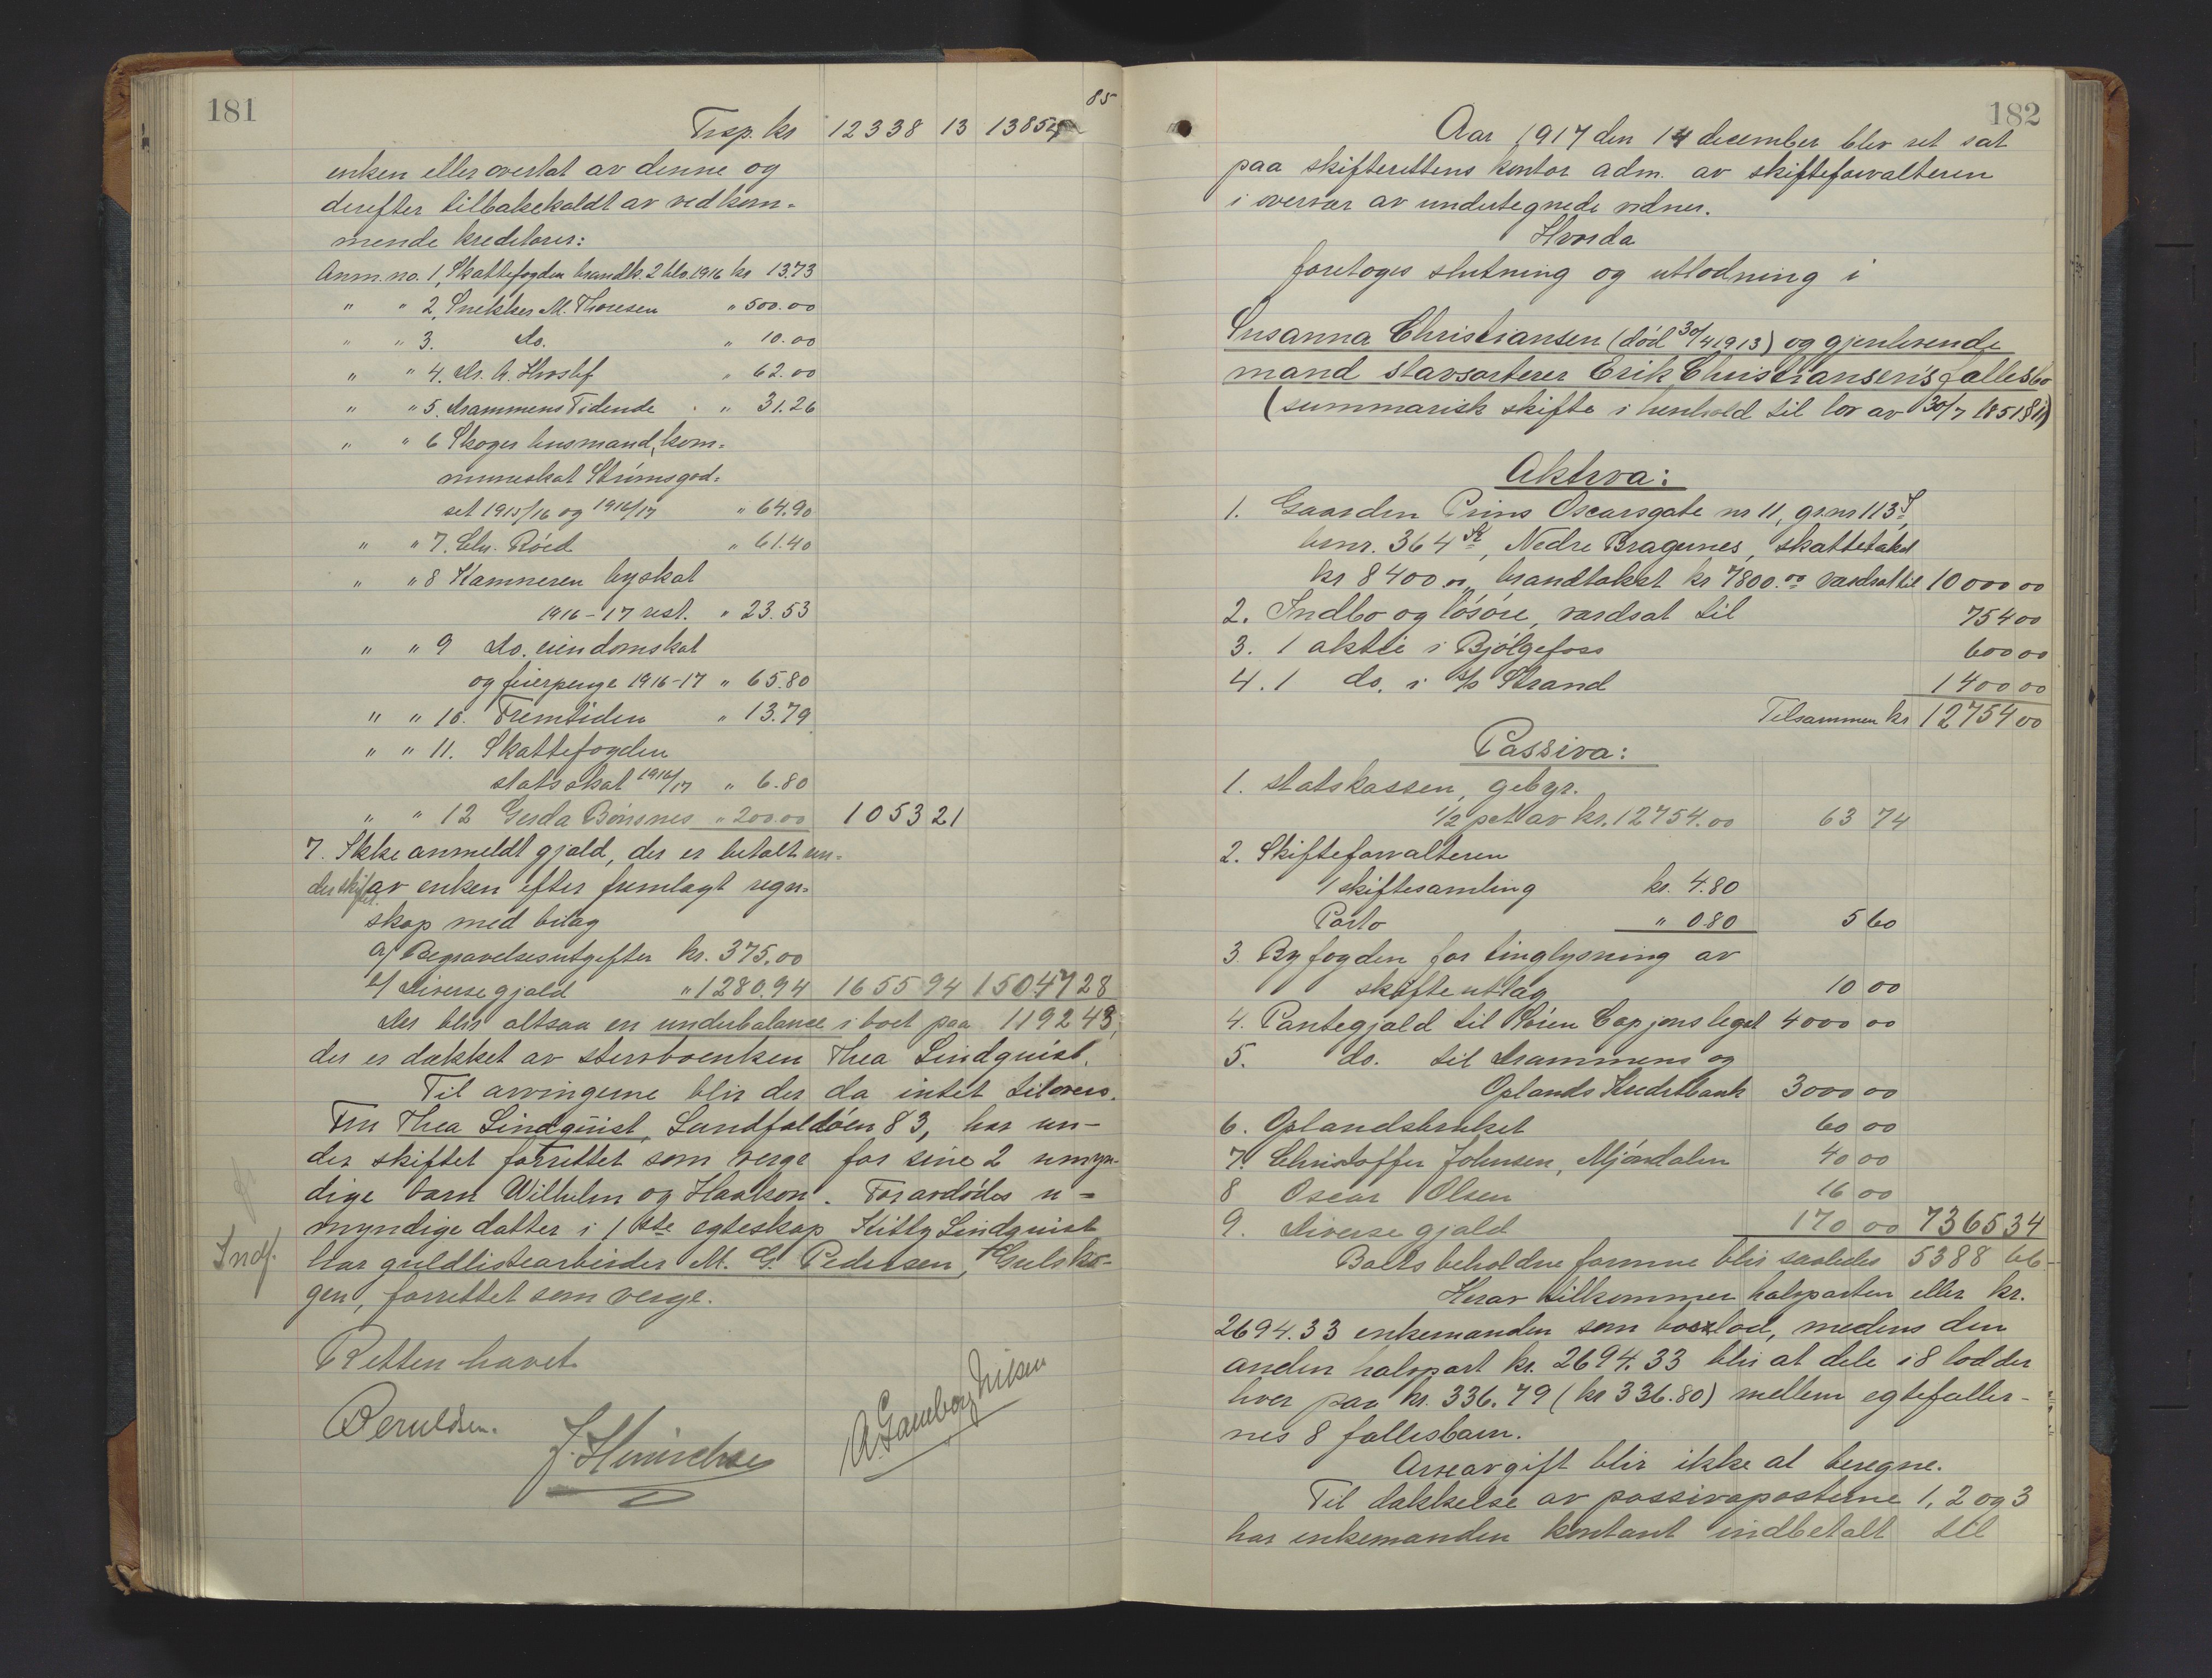 181
Trsp. kr 12338 13 13854 85
enken eller overtat av denne og
derefter tilbakekaldt av vedkom-
mende kreditorer:
Anm. no. 1, Skattefogden brandk. 2 hlv. 1916 kr 13.73
" " 2, Snekker M. Thoresen " 500.00
" " 3. do. " 10.00
" " 4. Dr. A. " 62.00
" " 5. Drammens Tidende " 31.26
" " 6 Skoger husmand, kom-
muneskat Strømsgod-
set 1915/16 og 1916/17 " 64.90
" " 7. Chr. Røed " 61.40
" " 8 Kæmneren byskat
1916-17 rest. " 23.53
" " 9 do. eiendomskat
og feierpenge 1916-17 " 65.80
" " 10. Fremtiden " 13.79
" " 11. Skattefogden
statsskat 1916/17 " 6.80
" " 12 Gerda Bønsnes " 200.00 1053 21
7. Ikke anmeldt gjæld, der er betalt un-
der skiftet av enken efter fremlagt regn-
skap med bilag
a/ Begravelsesutgifter kr. 375.00
b/ Diverse gjæld " 1280.94 1655 94 15047 28
Der blir altsaa en underbalance i boet paa 1192 43,
der er dækket av stervboenken Thea Lindquist.
Til arvingerne blir der da intet tilovers.
Fru Thea Lindquist, Sundfaldøen 83, har un-
der skiftet forrettet som verge for sine 2 umyn-
dige barn Wilhelm og Haakon. For avdødes u-
myndige datter i 1ste egteskap Kitty Lindquist
Indf.
har guldlistearbeider M. G. Pedersen, Gulsko-
gen, forrettet som verge.
Retten hævet
Beruldsen.
J. Hinrichse
A Gamborg Nilsen
182
Aar 1917 den 14 december blev ret sat
paa skifterettens kontor adm. av skifteforvalteren
i overvær av undertegnede vidner.
Hvorda
foretoges slutning og utlodning i
Susanna Christiansen (død 30/4 1913) og gjenlevende
mand stavsorterer Erik Christiansen's fællesbo
(summarisk skifte i henhold til lov av 30/7 1851 § 11)
Aktiva:
1. Gaarden Prins Oscarsgate nr 11, gr.nr 113 S,
bnr. 364 , Nedre Bragernes, skattetakst
kr 8400.00 brandtakst kr 7800.00 værdsat til 10000 00
2. Indbo og løsøre, værdsat til 754 00
3. 1 aktie i Bjølgefoss 600 00
4. 1 do. i s/s Strand 1400 00
Tilsammen kr 12754 00
Passiva:
1. Statskassen, gebyr.
1/2 pct av kr. 12754.00 63 74
2. Skifteforvalteren
1 skiftesamling kr. 4.80
Porto " 0.80 5 60
3. Byfogden for tinglysning av
skifteutlæg 10 00
4. Pantegjæld til Søren Capjons legat 4000 00
5. do. til Drammens og
Oplands Kreditbank 3000 00
6. Oplandsbruket 60 00
7. Christoffer Johnsen, Mjøndalen 40 00
8 Oscar Olsen 16 00
9. Diverse gjæld 170 00 7365 34
Boets beholdne formue blir saaledes 5388 66
Herav tilkommer halvparten eller kr.
2694.33 enkemanden som boeslod, medens den
anden halvpart kr. 2694.33 blir at dele i 8 lodder
hver paa kr. 336.79 (kr 336.80) mellem egtefæller-
nes 8 fællesbarn.
Arveavgift blir ikke at beregne.
Til dækkelse av passivaposterne 1, 2 og 3
har enkemanden kontant indbetalt til